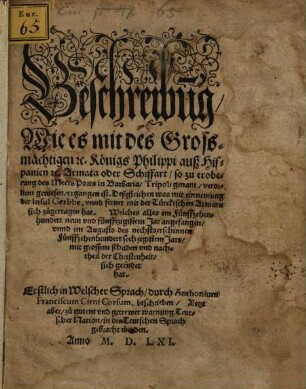 Eur.
65
Beschreibug/
Wie es mit des Gross-
mächtigen ꝛc. Königs Philippi auß His-
panien ꝛc. Armata oder Schiffart/ so zu erobe-
rung des Meers Ports in Barbaria/ Tripoli genant/ verord-
net gewesen/ ergangen ist. Desgleichen was mit einnemung
der Insul Gerbbe, vnnd ferner mit der Türckischen Armata
sich zugetragen hat. Welches alles im Fünffzehen-
hundert neun vnd fünffzigistem Jar angefangen/
vnnd im Augusto des nechstuerschinnen
Fünffzehenhundert sechzigistem Jars/
mit grossem schaden vnd nach-
theil der Christenheit/
sich geendet
hat.
Erstlich in Welscher Sprach/ durch Anthonium
Franciscum Cirni Corsum, beschriben/ Jetzt
aber/ zu gutem vnd getrewer warnung Teut-
scher Nation/ in die Teutschen Sprach
gebracht worden.
Anno M. D. LXI.